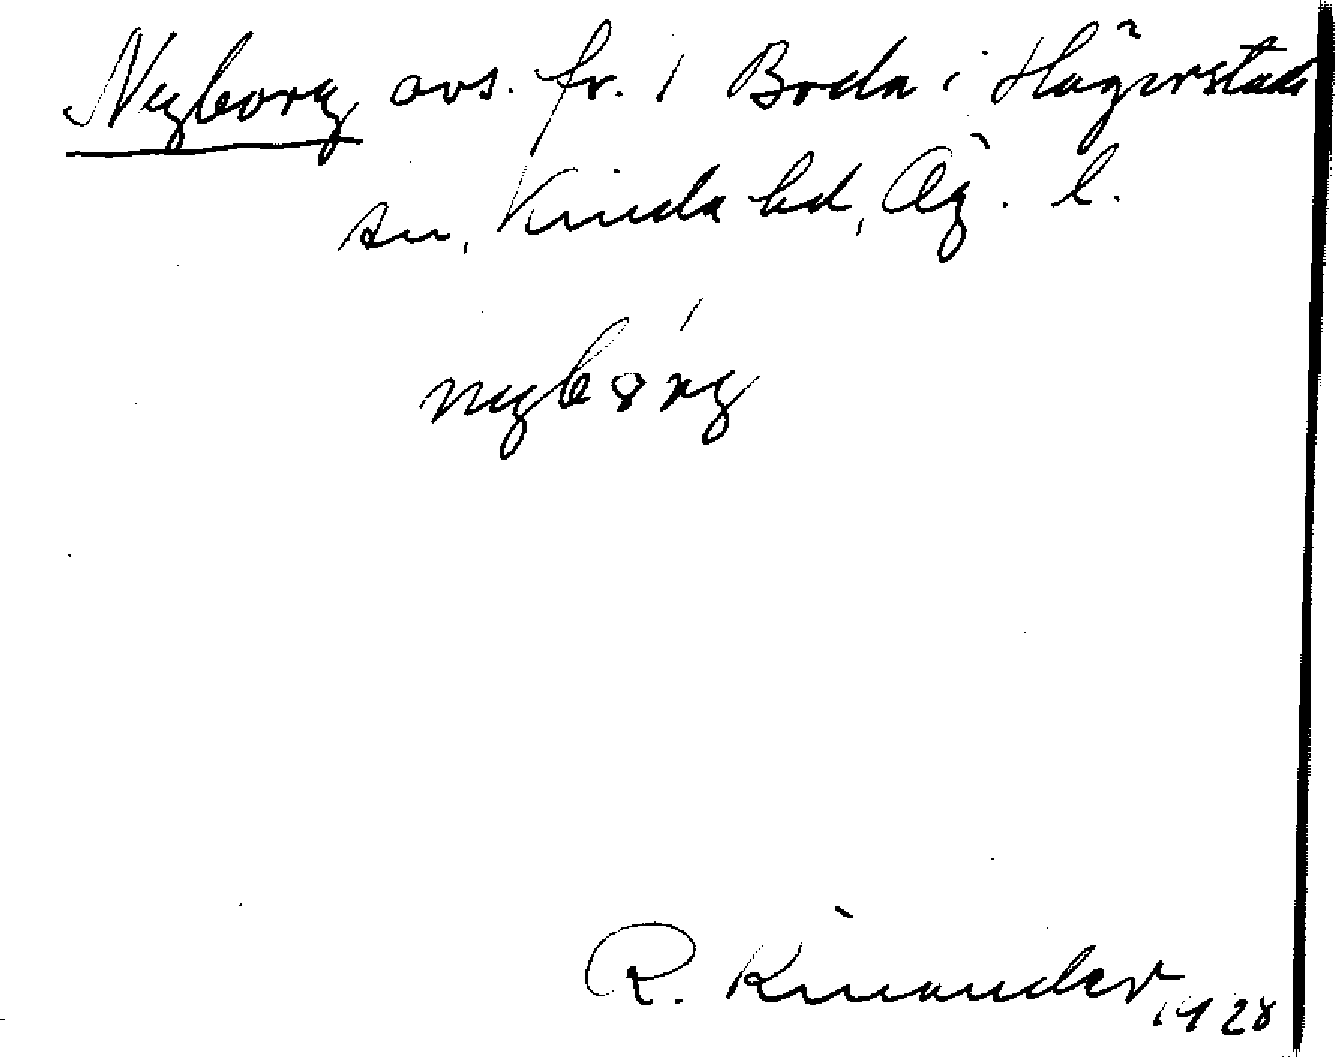 Nyborg avs. fr. 1 Boda i Hägerstads
sn, Kinda hd, Ög. l.
nybórg
R. Kinander
1928